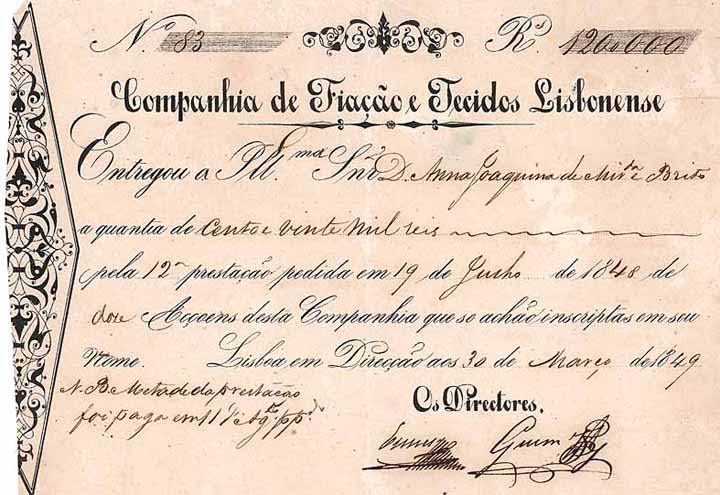 Nº 83 Rˢ 120,000
Companhia de Fiação e Tecidos Lisbonense
Entregou a Illᵐᵃ Snrᵃ D. Anna Joaquina de Mirᵈᵃ e Brito
a quantia de Cento e vinte Mil reis
pela 12ª prestação pedida em 19 de Junho de 1848 de
doze Acçoens desta Companhia que se achão inscriptas em seu
Nome. Lisboa em Direcção aos 30 de Março de 1849
N. B. Metade da prestação
foi paga em 11 d'Agᵗᵒ pp.
Os Directores.